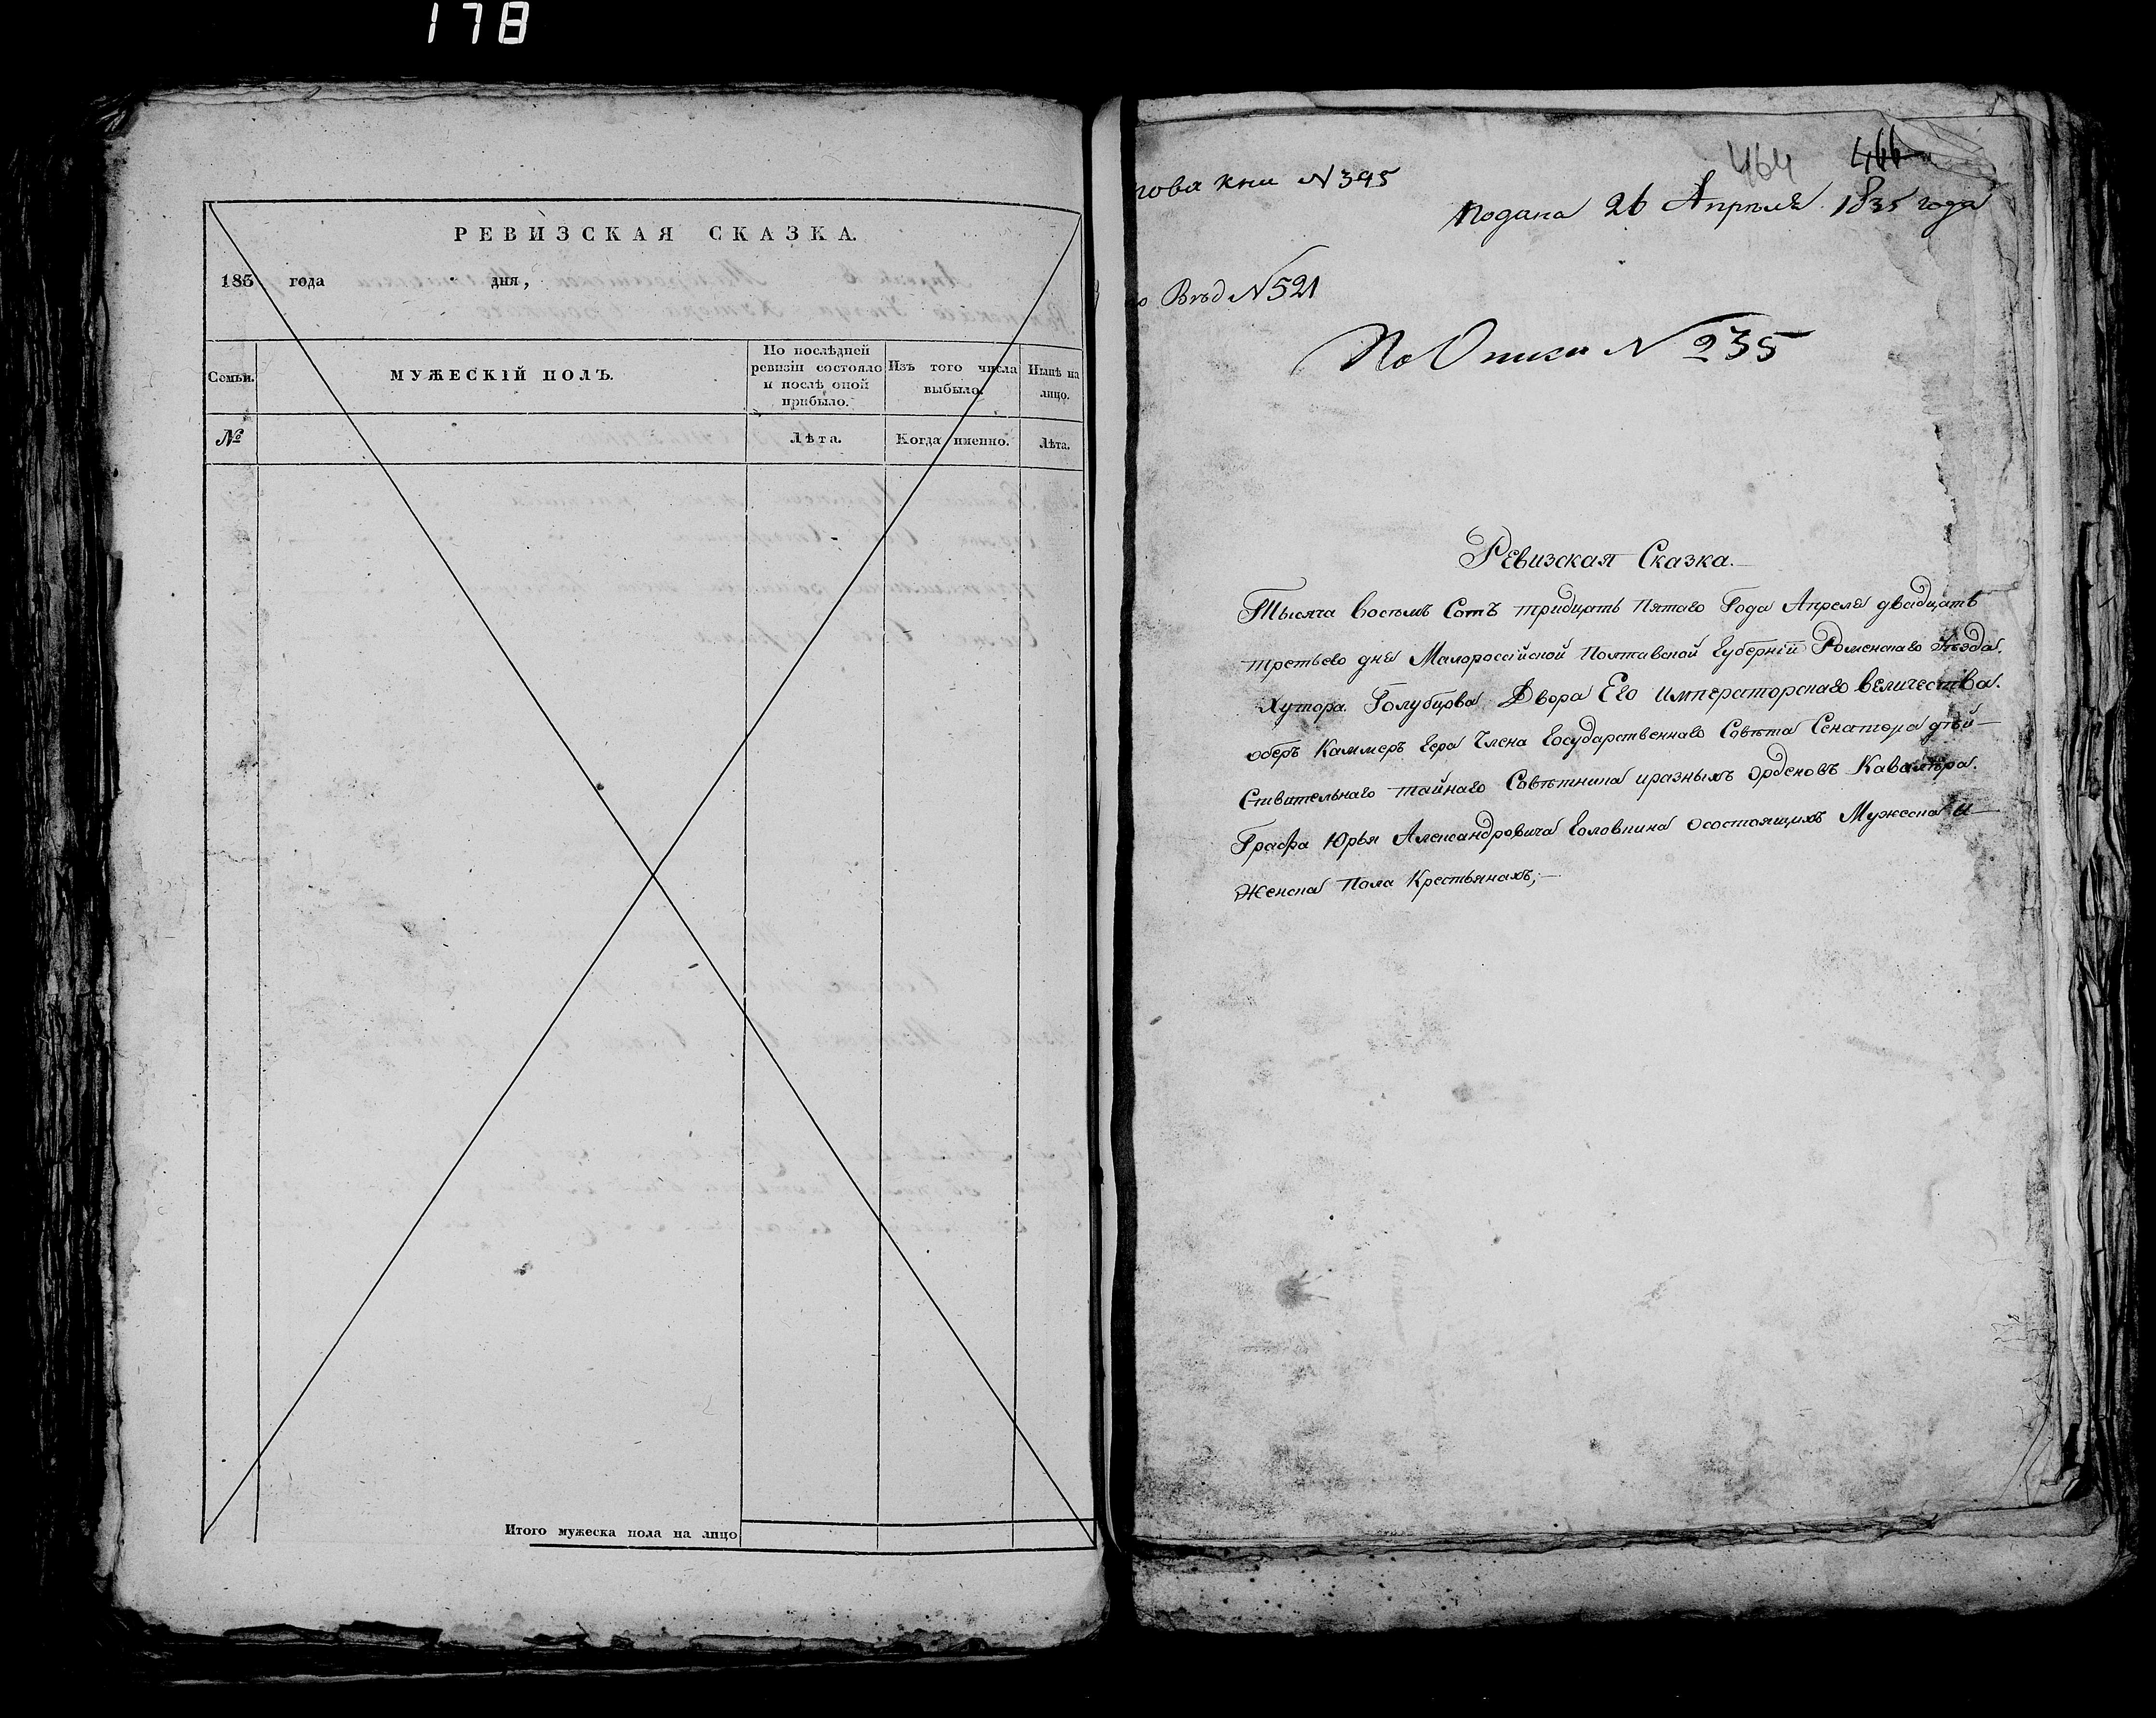 178
РЕВИЗСКАЯ СКАЗКА.
183 года дня,
Семьи.
МУЖЕСКІЙ ПОЛЪ.
По послѣдней ревизіи состояло и послѣ оной прибыло.
Изъ того числа выбыло.
Нынѣ на лицо.
№
Лѣта.
Когда именно.
Лѣта.
Итого мужеска пола на лицо
464 466
кни N 395
подана 26 Апрѣля 1835 года
Вѣд N 521
По Описи N 235
Ревизская Сказка.—
Тысяча восемъ Сотъ тридцать Пятаго Года Апреля двадцать
третьего дня Малороссійской Полтавской Губерніи Роменскаго Уезда.
Хутора Голубцова Двора Его императорскаго величества.
оберъ Каммеръ Гера Члена Государственнаго Совѣта Сенатора дѣй—
ствительнаго тайнаго Совѣтника иразныхъ Орденовъ Кавалера.
Графа Юрья Александровича Головкина осостоящихъ Мужеска и—
Женска Пола Крестьянахъ;—